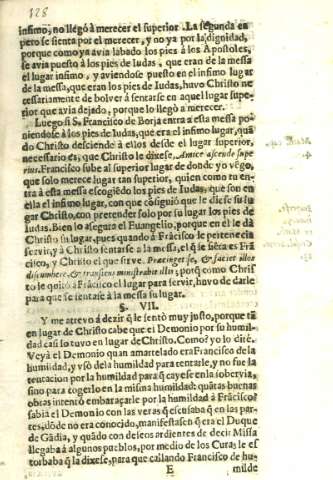 128
infimo, no llegó à merecer el superior. La segunda en
pero se sienta por el merecer, y no ya por la dignidad,
porque como ya avia labado los pies à los Apostoles,
se avia puesto à los pies de Iudas, que eran de la messa
el lugar infimo, y aviendose puesto en el infimo lugar
de la messa, que eran los pies de Iudas, huvo Christo ne
cessariamente de bolver á sentarse en aquel lugar supe-
rior que avia dejado, porque lo llegó a merecer.
Luego si S. Francisco de Borja entra a esta messa po
niendose à los pies de Iudas, que era el infimo lugar, quã
do Christo desciende à ellos desde el lugar superior,
necessario es, que Christo le dixesse, Amice ascende supe
rius. Francisco sube al superior lugar de donde yo vẽgo,
que solo merece lugar tan superior, quien como tu en-
tra à esta messa escogiẽdo los pies de Iudas, que son en
ella el infimo lugar, con que cõsiguió que le diesse su lu
gar Christo, con pretender solo por su lugar los pies de
Iudas. Bien lo asegura el Euangelio, porque en el le dà
Christo su lugar, pues quando à Frãcisco le pertenecia
servir, y à Christo sentarse a la messa, el q̃ se siẽta es Frã
cisco, y Christo el que sirve. Præcinget se, & faciet illos
discumbere, & transiens ministrabit illis; porq̃ como Chris
to le quitò à Francisco el lugar para servir, huvo de darle
para que se sentasse à la messa su lugar.
§. VII.
Y me atrevo à dezir q̃ le sentò muy justo, porque tã
en lugar de Christo cabe que el Demonio por su humil
dad casi lo tuvo en lugar de Christo. Como? yo lo diré.
Veyà el Demonio quan amartelado era Francisco de la
humildad, y vsó dela humildad para tentarle, y no fue la
tentacion por la humildad para q̃ cayesse en la sobervia,
sino para cogerlo en la misma humildad: quãtas buenas
obras intentó embaraçarle por la humildad à Frãcisco?
sabia el Demonio con las veras q̃ escusaba q̃ en las par-
tes, dõde no era conocido, manifestassen q̃ era el Duque
de Gãdia, y quãdo con deseos ardientes de decir Missa
llegaba à algunos pueblos, por medio de los Curas le es
torbaba q̃ la dixesse, para que callando Francisco de hu-
E
milde